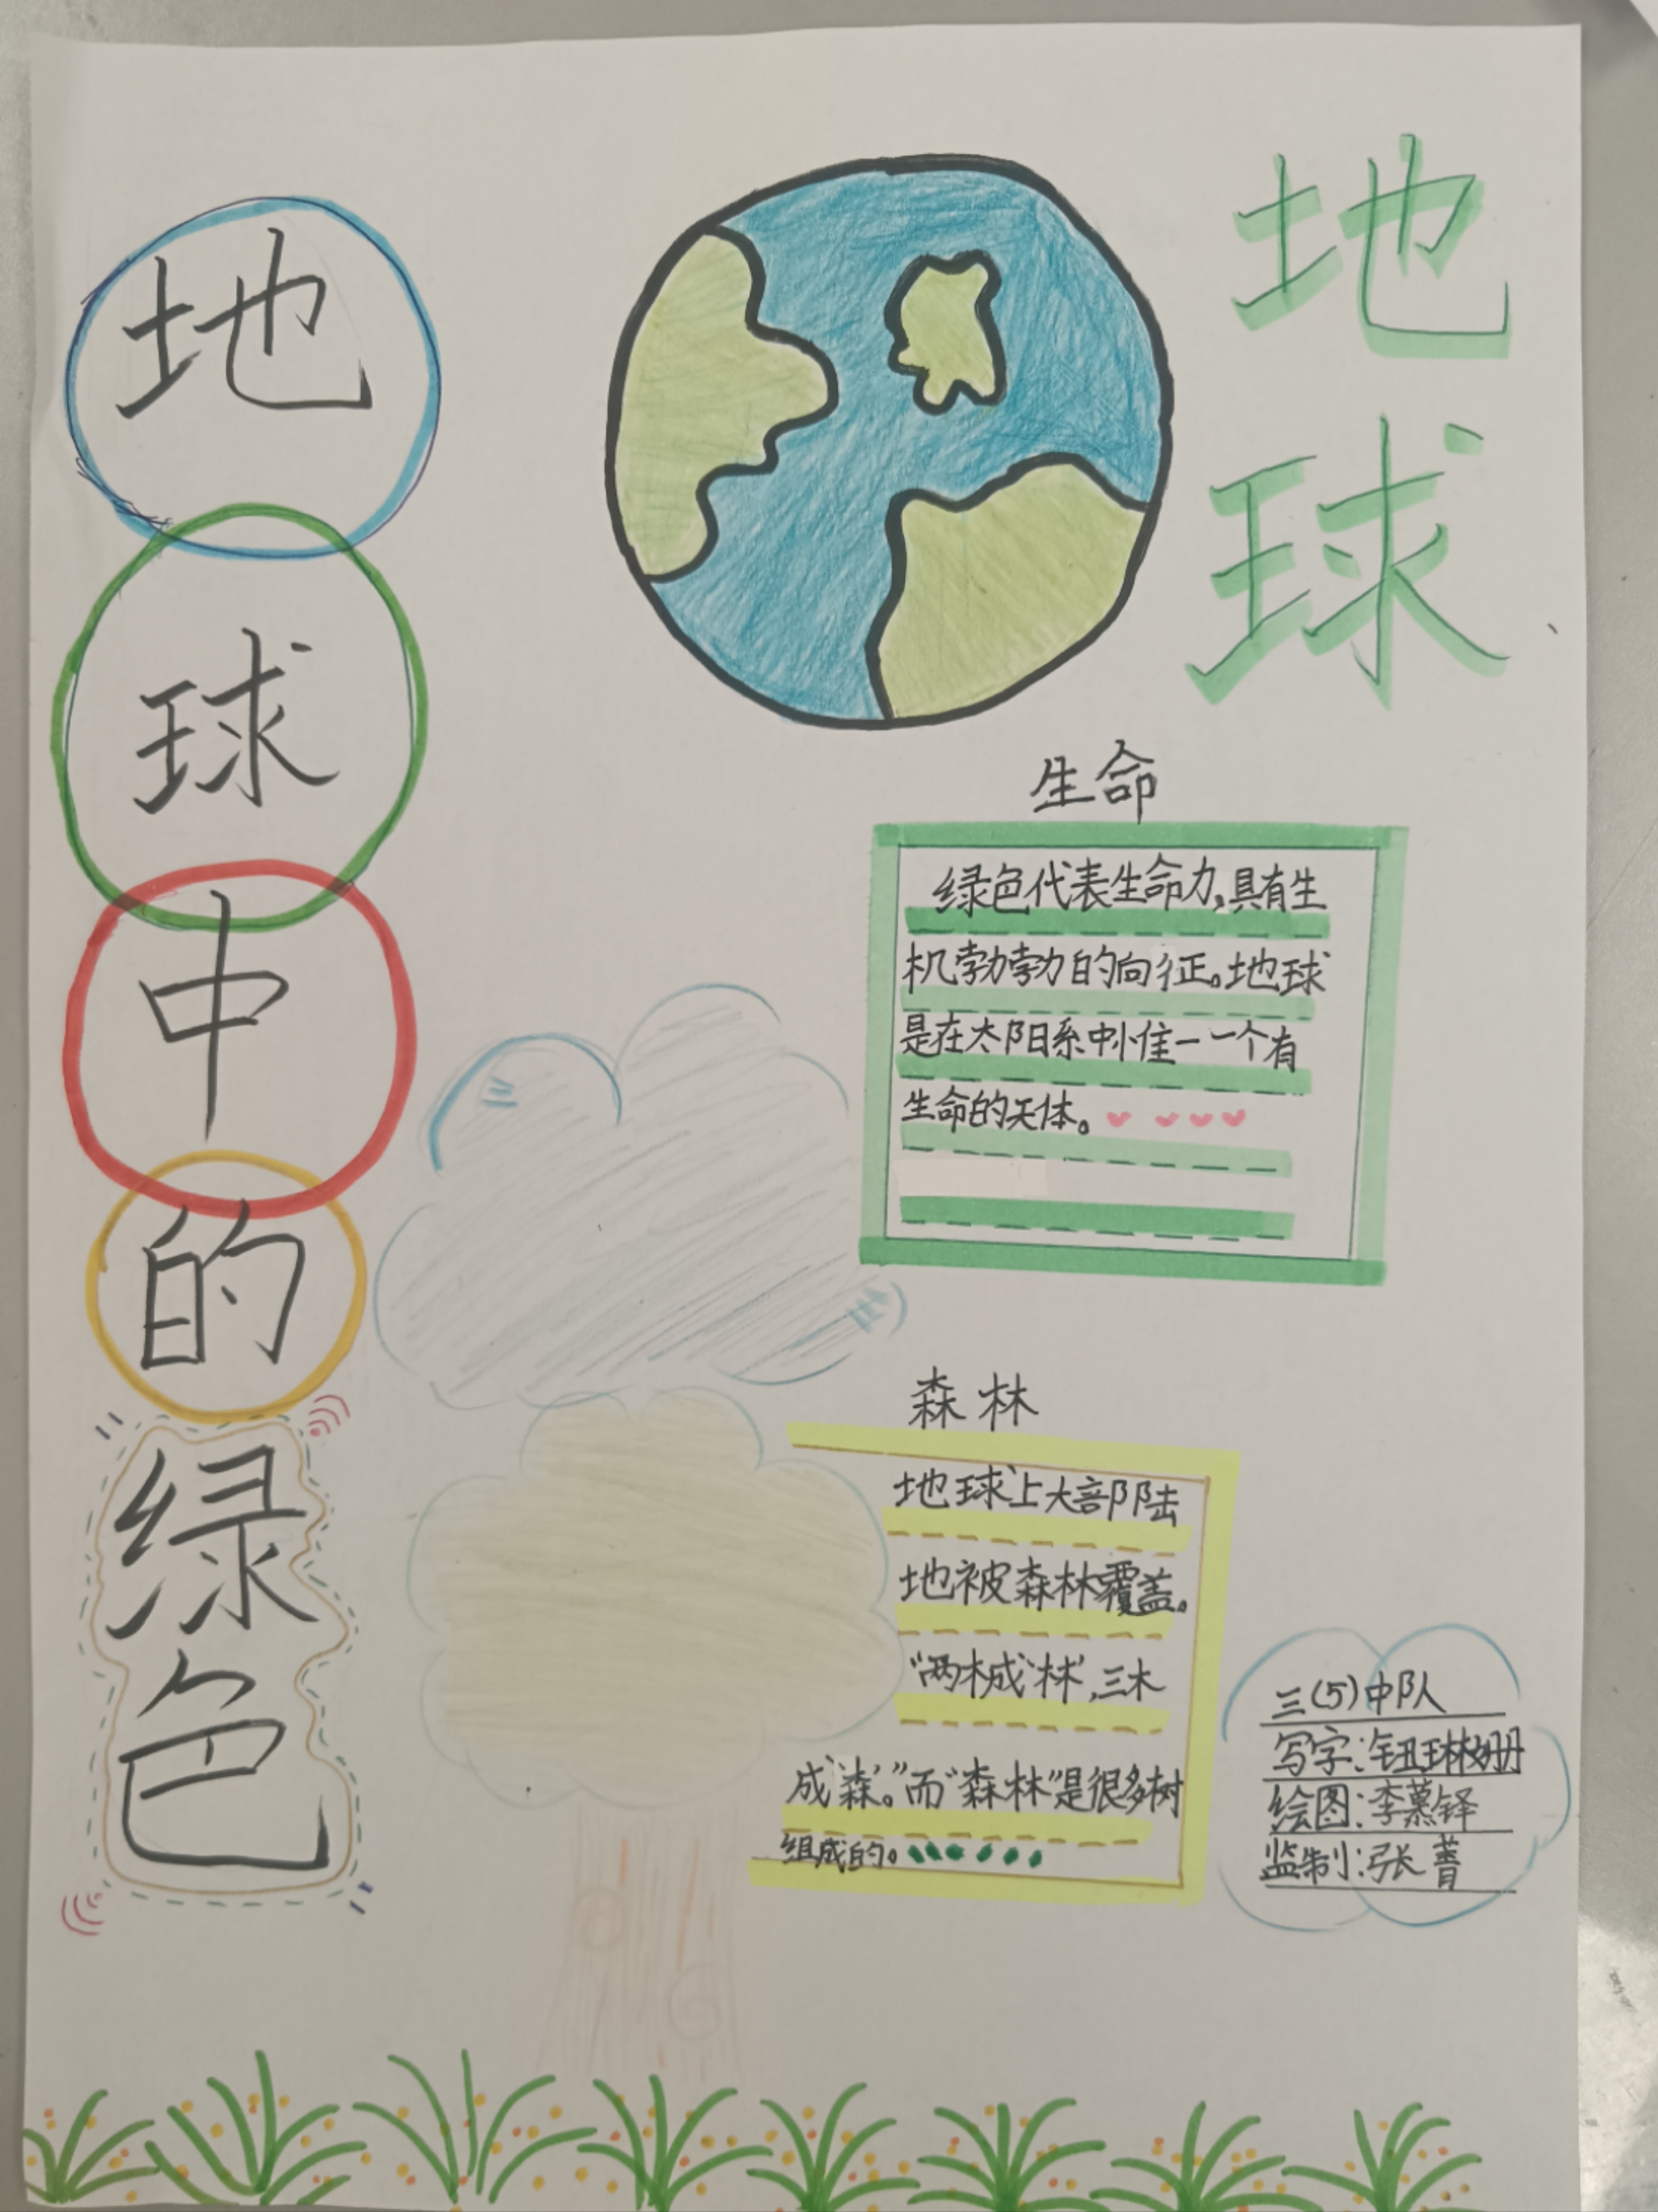 地
球
中
的
绿
色
地
球
生命
绿色代表生命力,具有生
机勃勃的向征。地球
是在太阳系中惟一一个有
生命的天体。
森林
地球上大部陆
地被森林覆盖。
“两木成‘林’,三木
成‘森’。”而“森林”是很多树
组成的。
三(5)中队
写字:钮琳姗
绘图:李慕铎
监制:张菁